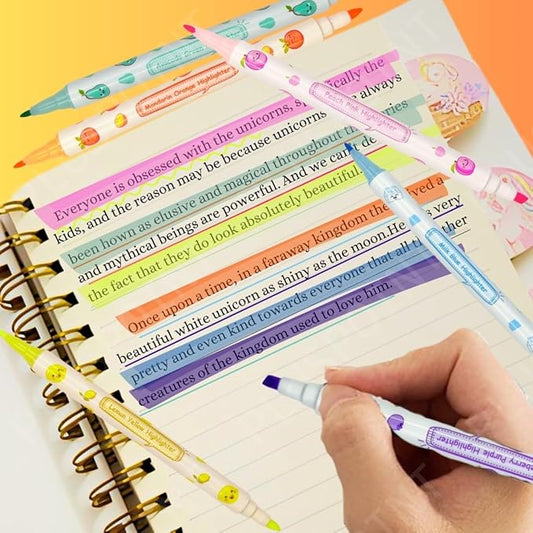 Avocado Green Highlighter
Mandarin Orange Highlighter
Peach Pink Highlighter
Everyone is obsessed with the unicorns, specifically the
kids, and the reason may be because unicorns have always
been hown as elusive and magical throughout the
and mythical beings are powerful. And we can't
the fact that they do look absolutely beautiful.
Once upon a time, in a faraway kingdom there lived a
beautiful white unicorn as shiny as the moon.He was very
pretty and even kind towards everyone that all the other
creatures of the kingdom used to love him.
Milk Blue Highlighter
Lemon Yellow Highlighter
Purple Highlighter